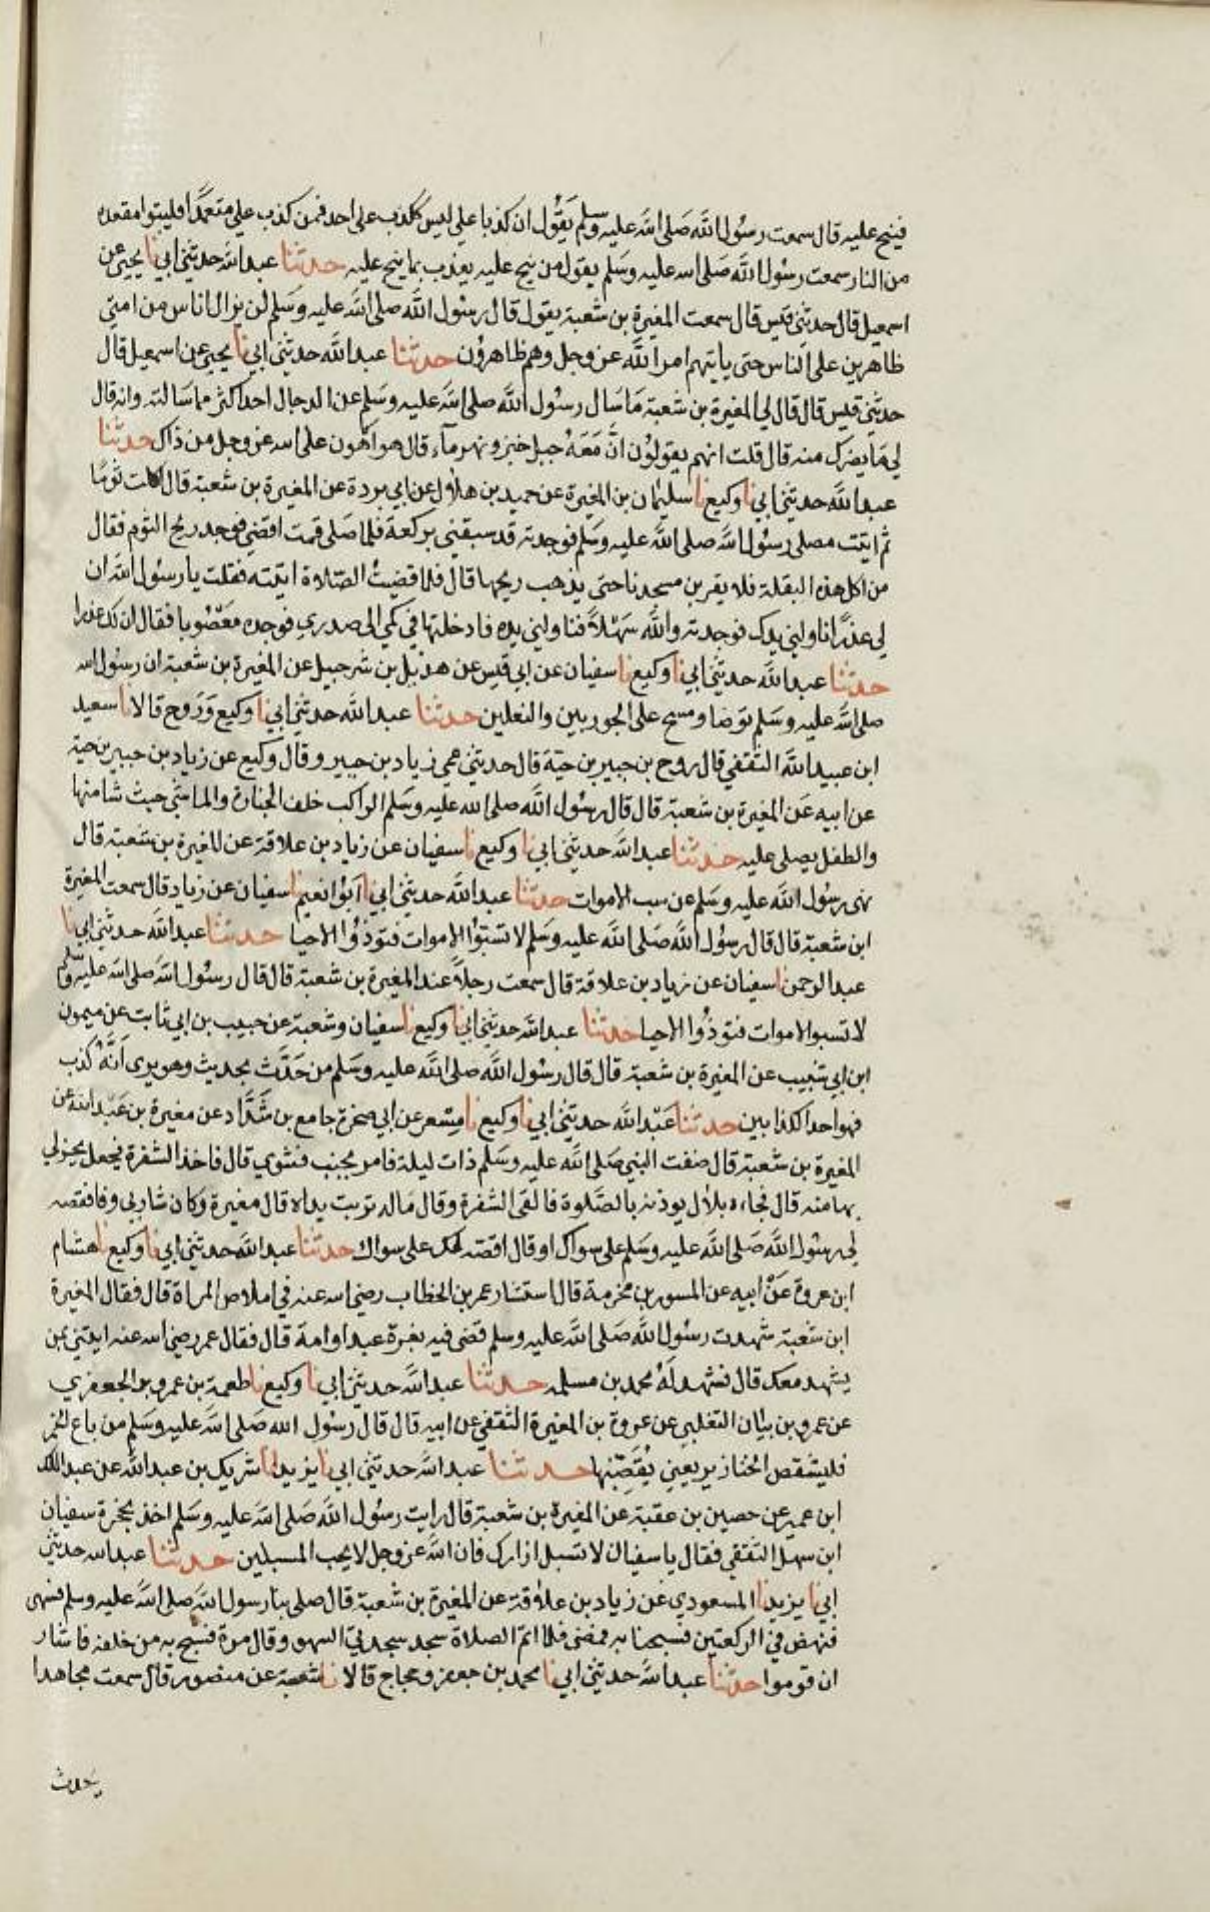 فينح عليه قال سمعت رسول الله صلى الله عليه وسلم يقول ان كذبا علي ليس ككذب على احد فمن كذب علي متعمدا فليتبوا مقعده
من النار سمعت رسول الله صلى الله عليه وسلم يقول من نيح عليه يعذب بما نيح عليه حدثنا عبد الله حدثني ابي نا يحيى عن
اسمعيل قال حدثني قيس قال سمعت المغيرة بن شعبة يقول قال رسول الله صلى الله عليه وسلم لن يزال اناس من امتي
ظاهرين على الناس حتى ياتيهم امر الله عز وجل وهم ظاهرون حدثنا عبد الله حدثني ابي نا يحيى عن اسمعيل قال
حدثني قيس قال قال لي المغيرة بن شعبة ما سال رسول الله صلى الله عليه وسلم عن الدجال احد اكثر مما سالته وانه قال
لي ما يضرك منه قال قلت انهم يقولون ان معه جبل خبز ونهر ماء قال هو اهون على الله عز وجل من ذاك حدثنا
عبد الله حدثني ابي نا وكيع نا سليمان بن المغيرة عن حميد بن هلال عن ابي بردة عن المغيرة بن شعبة قال اكلت ثوما
ثم اتيت مصلى رسول الله صلى الله عليه وسلم فوجدته قد سبقني بركعة فلما صلى قمت اقضي فوجد ريح الثوم فقال
من اكل هذه البقلة فلا يقربن مسجدنا حتى يذهب ريحها قال فلما قضيت الصلاة اتيته فقلت يا رسول الله ان
لي عذرا ناولني يدك فوجدته والله سهلا فناولني يده فادخلتها في كمي الى صدري فوجده معصوبا فقال ان لك عذرا
حدثنا عبد الله حدثني ابي نا وكيع نا سفيان عن ابي قيس عن هذيل بن شرحبيل عن المغيرة بن شعبة ان رسول الله
صلى الله عليه وسلم توضا ومسح على الجوربين والنعلين حدثنا عبد الله حدثني ابي نا وكيع وروح قالا نا سعيد
ابن عبيد الله الثقفي قال روح بن جبير بن حية قال حدثني عمي زياد بن جبير وقال وكيع عن زياد بن جبير بن حية
عن ابيه عن المغيرة بن شعبة قال قال رسول الله صلى الله عليه وسلم الراكب خلف الجنازة والماشي حيث شا منها
والطفل يصلى عليه حدثنا عبد الله حدثني ابي نا وكيع نا سفيان عن زياد بن علاقة عن المغيرة بن شعبة قال
نهى رسول الله عليه وسلم عن سب الاموات حدثنا عبد الله حدثني ابي نا ابو نعيم نا سفيان عن زياد قال سمعت المغيرة
ابن شعبة قال قال رسول الله صلى الله عليه وسلم لا تسبوا الاموات فتوذوا الاحيا حدثنا عبد الله حدثني ابي نا
عبد الرحمن نا سفيان عن زياد بن علاقة قال سمعت رجلا عند المغيرة بن شعبة قال قال رسول الله صلى الله عليه وسلم
لا تسبوا الاموات فتوذوا الاحيا حدثنا عبد الله حدثني ابي نا وكيع نا سفيان وشعبة عن حبيب بن ابي ثابت عن ميمون
ابن ابي شبيب عن المغيرة بن شعبة قال قال رسول الله صلى الله عليه وسلم من حدث بحديث وهو يرى انه كذب
فهو احد الكذابين حدثنا عبد الله حدثني ابي نا وكيع نا مسعر عن ابي صخرة جامع بن شداد عن مغيرة بن عبد الله عن
المغيرة بن شعبة قال ضفت النبي صلى الله عليه وسلم ذات ليلة فامر بجنب فشوي قال فاخذ الشفرة فجعل يحز لي
بها منه قال فجاءه بلال يوذنه بالصلوة فالقى الشفرة وقال ماله تربت يداه قال مغيرة وكان شاربي وفا فقصه
لي رسول الله صلى الله عليه وسلم على سواك او قال اقصه لك على سواك حدثنا عبد الله حدثني ابي نا وكيع نا هشام
ابن عروة عن ابيه عن المسور بن مخرمة قال استشار عمر بن الخطاب رضي الله عنه في املاص المراة قال فقال المغيرة
ابن شعبة شهدت رسول الله صلى الله عليه وسلم قضى فيه بغرة عبد او امة قال فقال عمر رضي الله عنه ايتني بمن
يشهد معك قال فشهد له محمد بن مسلمة حدثنا عبد الله حدثني ابي نا وكيع نا طعمة بن عمرو الجعفري
عن عمرو بن بيان التغلبي عن عروة بن المغيرة الثقفي عن ابيه قال قال رسول الله صلى الله عليه وسلم من باع الخمر
فليشقص الخنازير يعني يقصبها حدثنا عبد الله حدثني ابي نا يزيد انا شريك بن عبد الله عن عبد الملك
ابن عمير عن حصين بن عقبة عن المغيرة بن شعبة قال رايت رسول الله صلى الله عليه وسلم اخذ بحجزة سفيان
ابن سهل الثقفي فقال يا سفيان لا تسبل ازارك فان الله عز وجل لا يحب المسبلين حدثنا عبد الله حدثني
ابي نا يزيد نا المسعودي عن زياد بن علاقة عن المغيرة بن شعبة قال صلى بنا رسول الله صلى الله عليه وسلم فسهى
فنهض في الركعتين فسبحنا به فمضى فلما اتم الصلاة سجد سجدتي السهو وقال مرة فسبح به من خلفه فاشار
ان قوموا حدثنا عبد الله حدثني ابي نا محمد بن جعفر وحجاج قالا نا شعبة عن منصور قال سمعت مجاهدا
يحدث